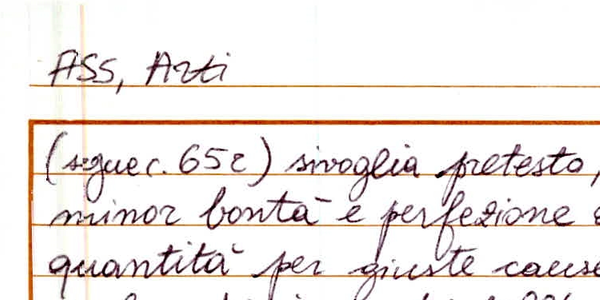 ASS, Arti
(segue c. 65r) sivoglia pretesto,
minor bontà e perfezione
quantità per giuste cause